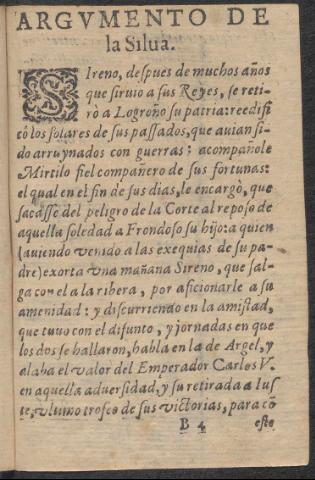 ARGVMENTO DE
la Silua.
SIreno, despues de muchos años
que siruio a sus Reyes, se reti-
rò a Logroño su patria: reedifi
cò los solares de sus passados, que auian si-
do arruynados con guerras: acompañole
Mirtilo fiel compañero de sus fortunas:
el qual en el fin de sus dias, le encargò, que
sacasse del peligro de la Corte al reposo de
aquella soledad a Frondoso su hijo: a quien
(auiendo venido a las exequias de su pa-
dre) exorta vna mañana Sireno, que sal-
ga con el a la ribera, por aficionarle a su
amenidad: y discurriendo en la amistad,
que tuuo con el difunto, y jornadas en que
los dos se hallaron, habla en la de Argel, y
alaba el valor del Emperador Carlos V.
en aquella aduersidad, y su retirada a Ius
te, vltimo trofeo de sus victorias, para cō
B 4 esto